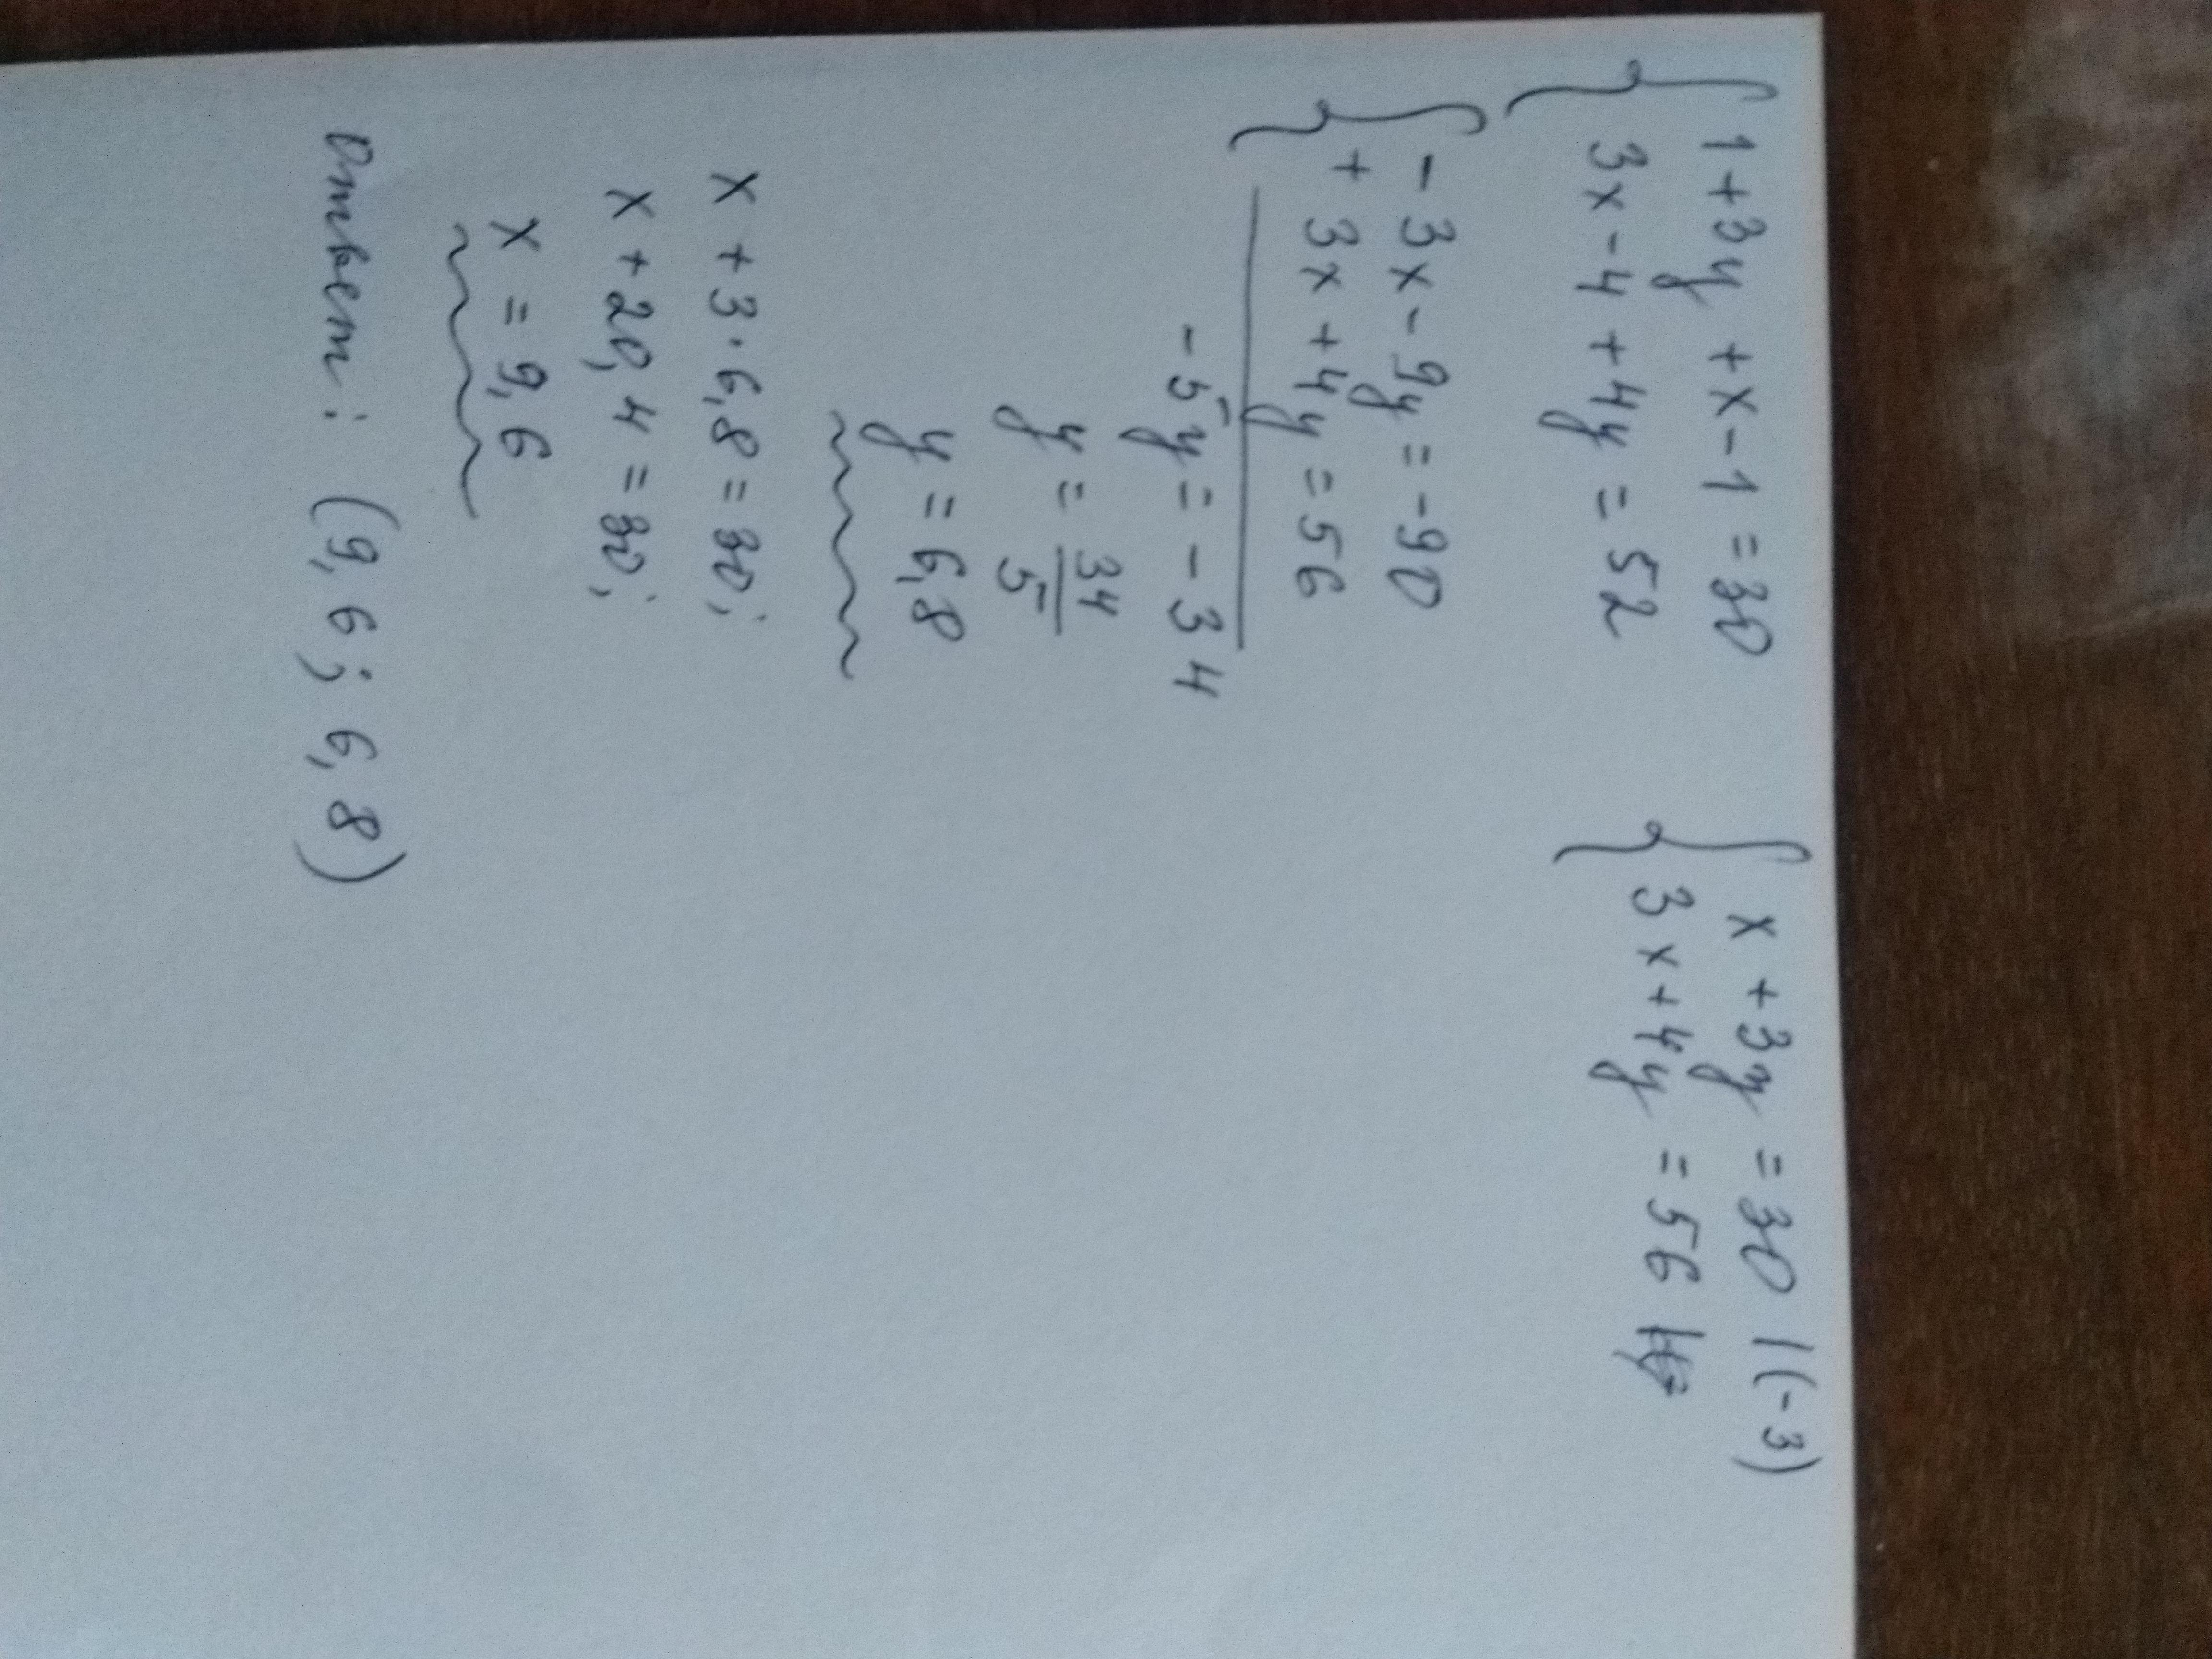 { 1+3y + x - 1 = 30
3x - 4 + 4y = 52
{ x + 3y = 30 | (-3)
3x + 4y = 56
{ - 3x - 9y = -90
+ 3x + 4y = 56
- 5y = - 34
y = 34/5
y = 6,8
x + 3 · 6,8 = 30;
x + 20,4 = 30;
x = 9,6
Ответ: (9,6; 6,8)